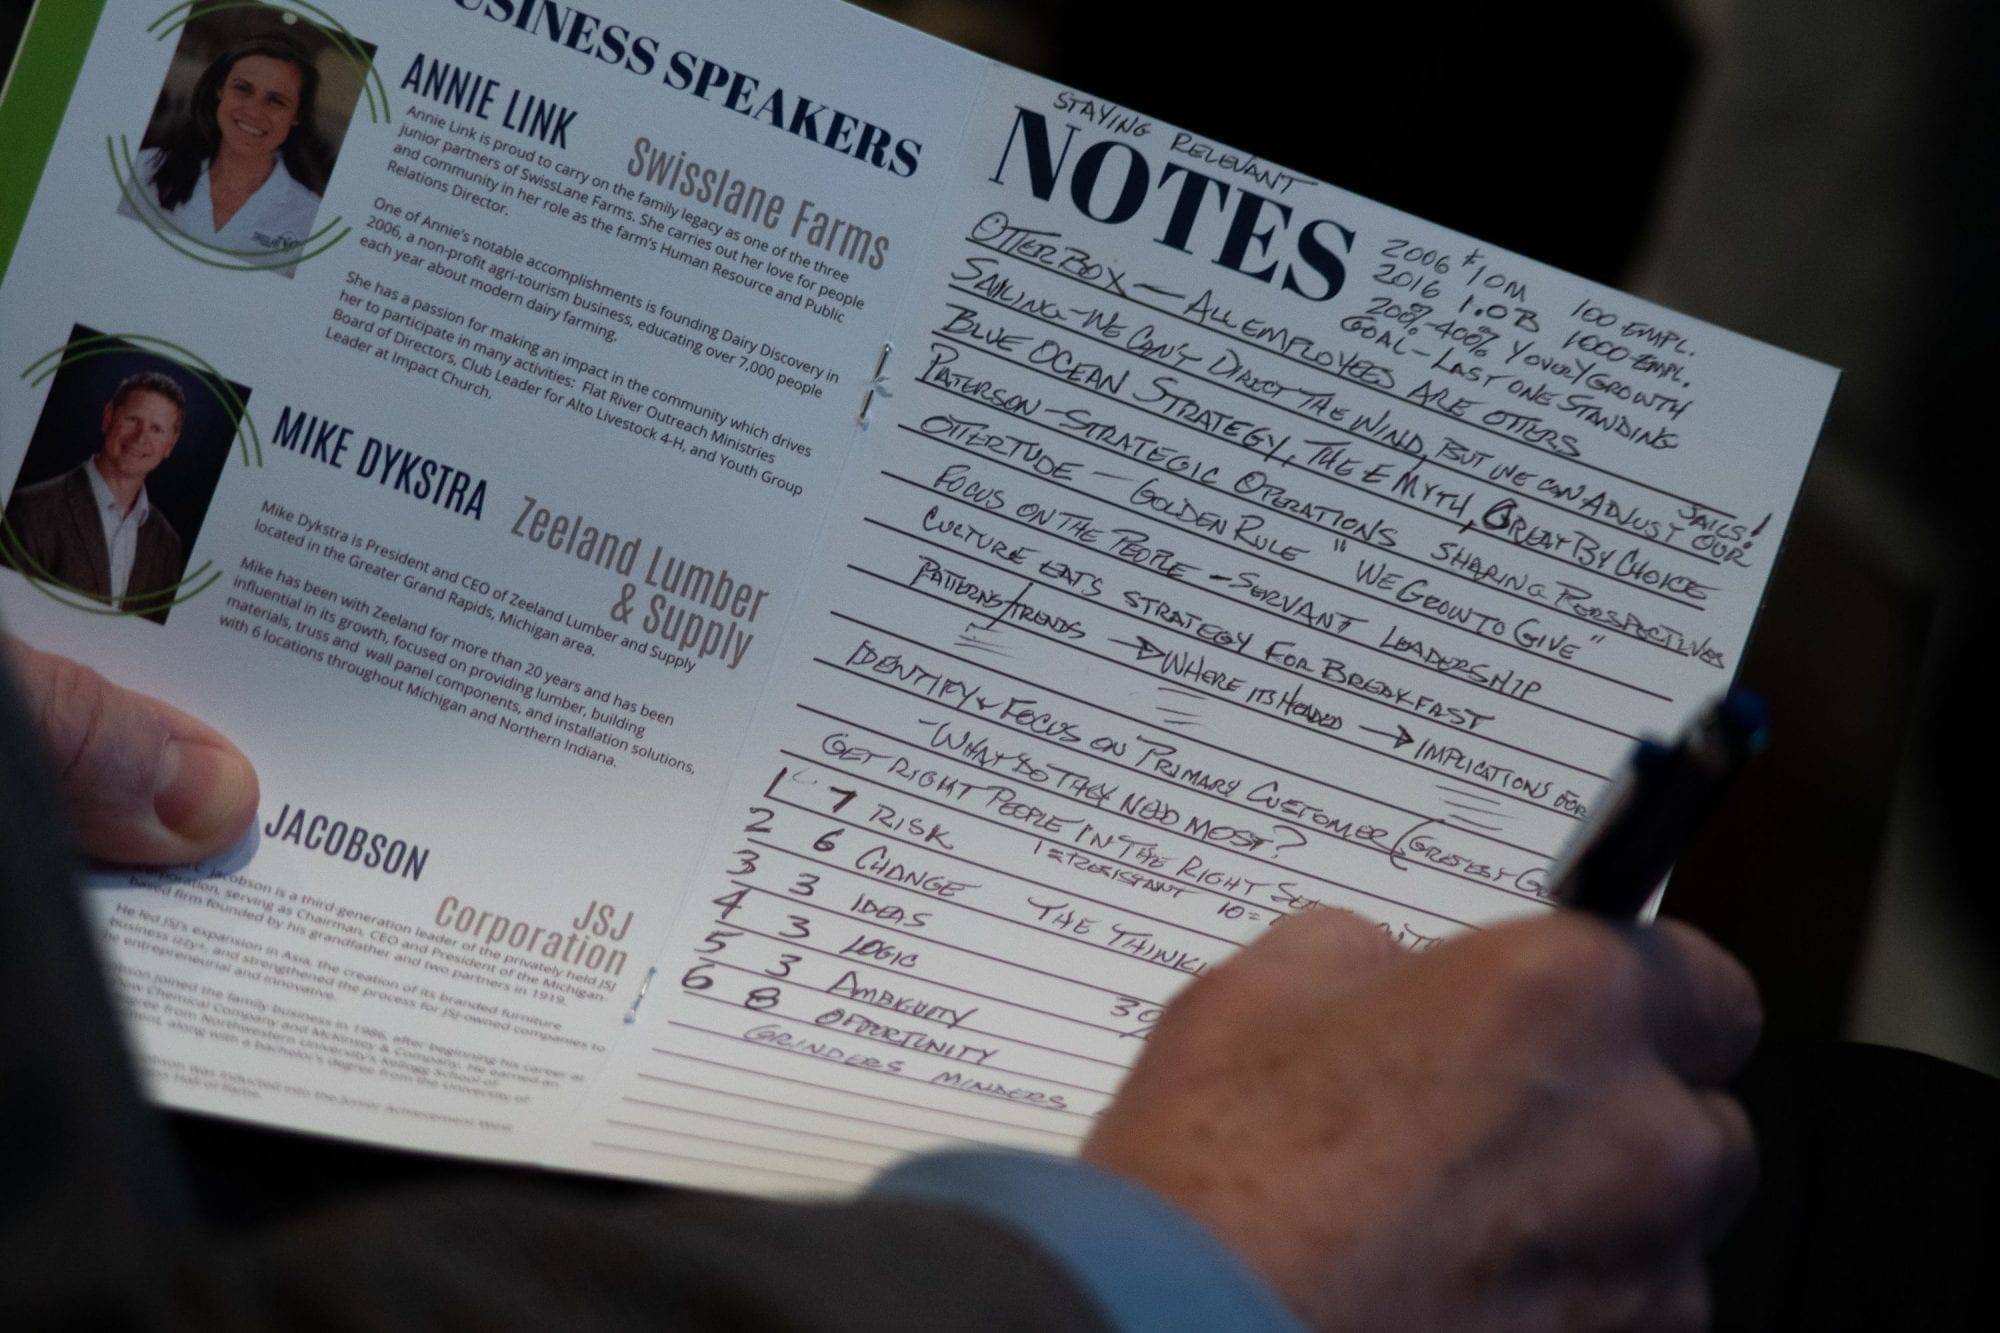 BUSINESS SPEAKERS
ANNIE LINK
Swisslane Farms
Annie Link is proud to carry on the family legacy as one of the three
junior partners of SwissLane Farms. She carries out her love for people
and community in her role as the farm's Human Resource and Public
Relations Director.
One of Annie's notable accomplishments is founding Dairy Discovery in
2006, a non-profit agri-tourism business, educating over 7,000 people
each year about modern dairy farming.
She has a passion for making an impact in the community which drives
her to participate in many activities: Flat River Outreach Ministries
Board of Directors, Club Leader for Alto Livestock 4-H, and Youth Group
Leader at Impact Church.
MIKE DYKSTRA
Zeeland Lumber
& Supply
Mike Dykstra is President and CEO of Zeeland Lumber and Supply
located in the Greater Grand Rapids, Michigan area.
Mike has been with Zeeland for more than 20 years and has been
influential in its growth, focused on providing lumber, building
materials, truss and wall panel components, and installation solutions,
with 6 locations throughout Michigan and Northern Indiana.
JACOBSON
JSJ
Corporation
Jacobson is a third-generation leader of the privately held JSJ
Corporation, serving as Chairman, CEO and President of the Michigan-
based firm founded by his grandfather and two partners in 1919.
He led JSJ's expansion in Asia, the creation of its branded furniture
business izzy+, and strengthened the process for JSJ-owned companies to
be entrepreneurial and innovative.
joined the family business in 1986, after beginning his career at
Dow Chemical Company and McKinsey & Company. He earned an
degree from Northwestern University's Kellogg School of
along with a bachelor's degree from the University of
was inducted into the Junior Achievement West
Hall of Fame.
STAYING RELEVANT
NOTES
2006 $10M 100 EMPL.
2016 1.0B 1000 EMPL.
200%-400% YOVERY GROWTH
GOAL - LAST ONE STANDING
OTTERBOX - ALL EMPLOYEES ARE OTTERS
SAILING - WE CAN'T DIRECT THE WIND, BUT WE CAN ADJUST OUR
SAILS!
BLUE OCEAN STRATEGY, THE E MYTH, GREAT BY CHOICE
PATERSON - STRATEGIC OPERATIONS SHARING PERSPECTIVES
OTTERTUDE - GOLDEN RULE "WE GROW TO GIVE"
FOCUS ON THE PEOPLE - SERVANT LEADERSHIP
CULTURE EATS STRATEGY FOR BREAKFAST
PATTERNS/TRENDS → WHERE ITS HEADED → IMPLICATIONS FOR
IDENTIFY & FOCUS ON PRIMARY CUSTOMER
- WHAT DO THEY NEED MOST?
GET RIGHT PEOPLE IN THE RIGHT
1 = RESISTANT 10 =
1 7 RISK
2 6 CHANGE THE
3 3 IDEAS
4 3 LOGIC
5 3 AMBIGUITY
6 8 OPPORTUNITY
GRINDERS MINDERS